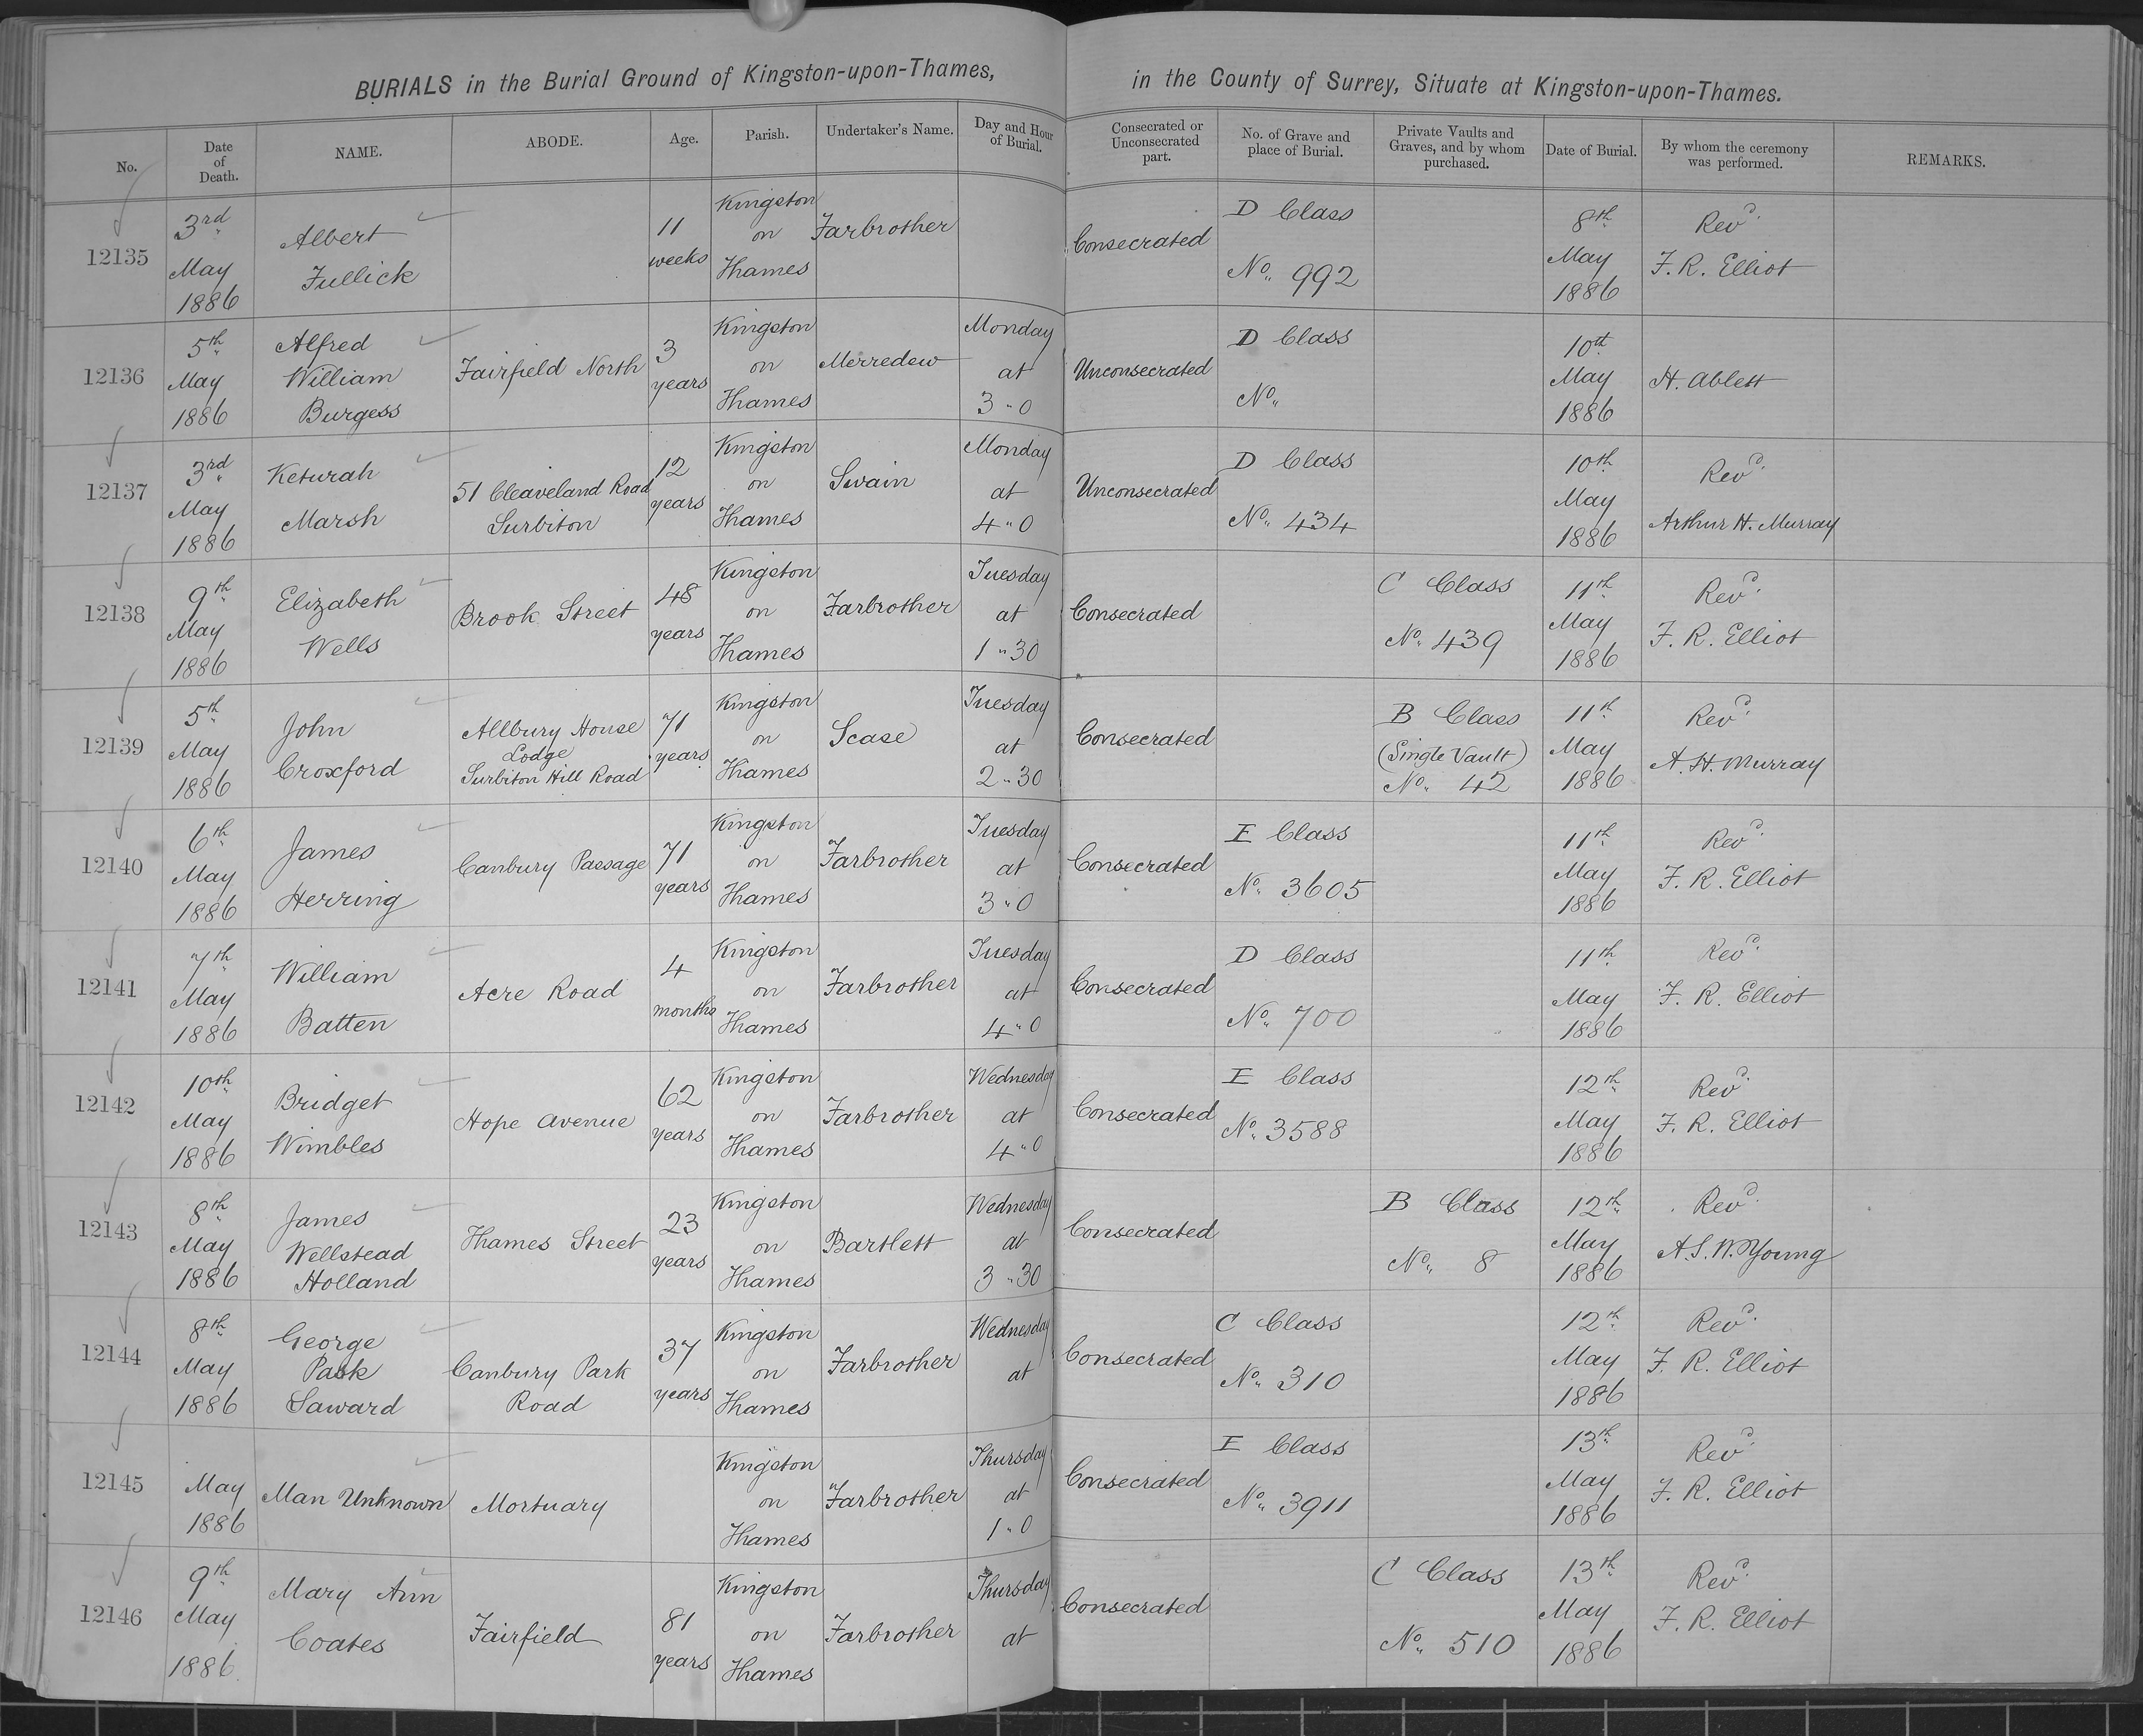 BURIALS in the Burial Ground of Kingston-upon-Thames, in the County of Surrey, Situate at Kingston-upon-Thames.
No. Date of Death. NAME. ABODE. Age. Parish. Undertaker's Name. Day and Hour of Burial. Consecrated or Unconsecrated part. No. of Grave and place of Burial. Private Vaults and Graves, and by whom purchased. Date of Burial. By whom the ceremony was performed. REMARKS.
12135 3rd May 1886 Albert Fullick 11 weeks Kingston on Thames Farbrother Consecrated D Class No. 992 8th May 1886 Revd. F. R. Elliot
12136 5th May 1886 Alfred William Burgess Fairfield North 3 years Kingston on Thames Merredew Monday at 3"0 Unconsecrated D Class No. 10th May 1886 H. Ablett
12137 3rd May 1886 Keturah Marsh 51 Cleaveland Road Surbiton 12 years Kingston on Thames Swain Monday at 4"0 Unconsecrated D Class No. 434 10th May 1886 Revd. Arthur H. Murray
12138 9th May 1886 Elizabeth Wells Brook Street 48 years Kingston on Thames Farbrother Tuesday at 1"30 Consecrated C Class No. 439 11th May 1886 Revd. F. R. Elliot
12139 5th May 1886 John Croxford Allbury House Lodge Surbiton Hill Road 71 years Kingston on Thames Scase Tuesday at 2"30 Consecrated B Class (Single Vault) No. 42 11th May 1886 Revd. A. H. Murray
12140 6th May 1886 James Herring Canbury Passage 71 years Kingston on Thames Farbrother Tuesday at 3"0 Consecrated E Class No. 3605 11th May 1886 Revd. F. R. Elliot
12141 7th May 1886 William Batten Acre Road 4 months Kingston on Thames Farbrother Tuesday at 4"0 Consecrated D Class No. 700 11th May 1886 Revd. F. R. Elliot
12142 10th May 1886 Bridget Wimbles Hope Avenue 62 years Kingston on Thames Farbrother Wednesday at 4"0 Consecrated E Class No. 3588 12th May 1886 Revd. F. R. Elliot
12143 8th May 1886 James Wellstead Holland Thames Street 23 years Kingston on Thames Bartlett Wednesday at 3"30 Consecrated B Class No. 8 12th May 1886 Revd. A. S. W. Young
12144 8th May 1886 George Park Saward Canbury Park Road 37 years Kingston on Thames Farbrother Wednesday at Consecrated C Class No. 310 12th May 1886 Revd. F. R. Elliot
12145 May 1886 Man Unknown Mortuary Kingston on Thames Farbrother Thursday at 1"0 Consecrated E Class No. 3911 13th May 1886 Revd. F. R. Elliot
12146 9th May 1886 Mary Ann Coates Fairfield 81 years Kingston on Thames Farbrother Thursday at Consecrated C Class No. 510 13th May 1886 Revd. F. R. Elliot